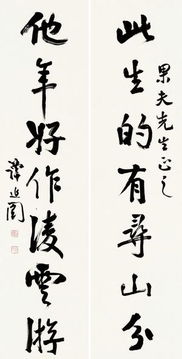 果夫先生正之
此生的有尋山分
他年好作淩雲游
譚延闓